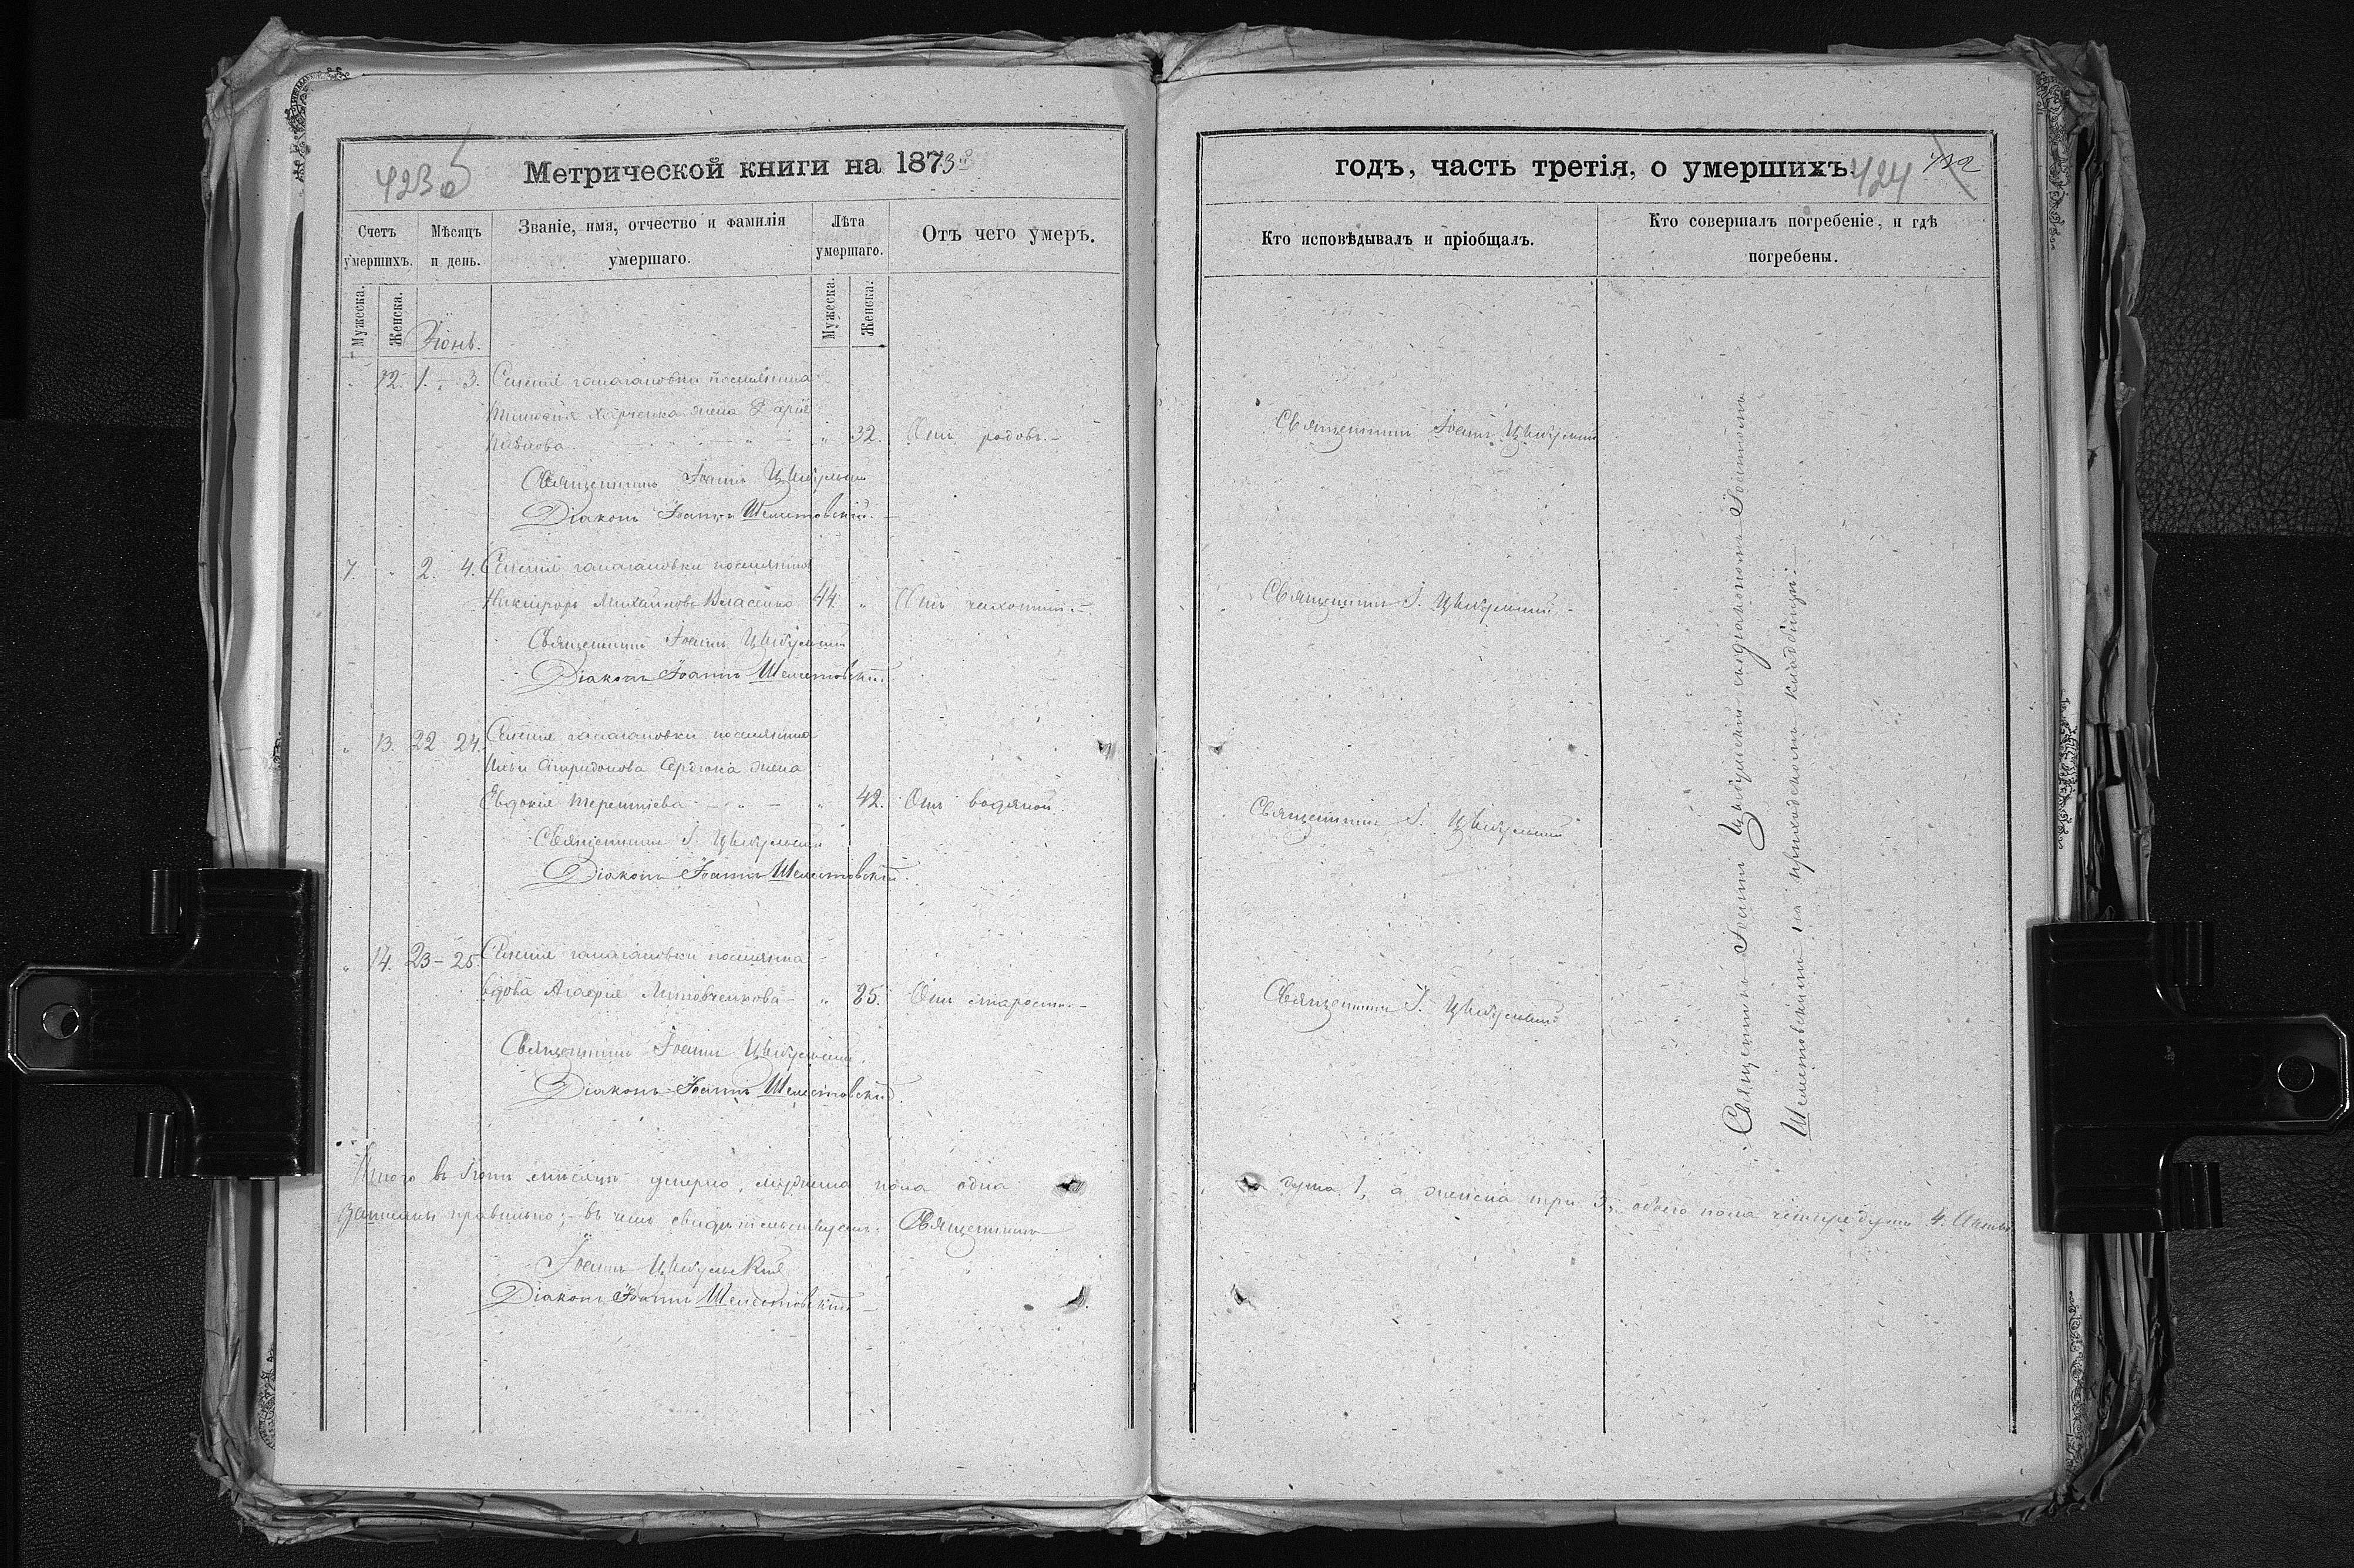 423 об
Метрической книги на 1873й
Счетъ умершихъ.
Мѣсяцъ и день.
Званіе, имя, отчество и фамилія умершаго.
Лѣта умершаго.
Отъ чего умеръ.
Мужеска.
Женска.
Мужеска.
Женска.
Іюнь.
" 12. 1. - 3. Селенія галагановки поселянина
Харченка жена Дарія
Павлова " 32. Отъ родовъ.
Священникъ Іоаннъ Цыбульскій
Діаконъ Іоаннъ Шелестовскій.
7. " 2. - 4. Селенія галагановки поселянинъ
Никифоръ Михайловъ Власенко 44. " Отъ чахотки.
Священникъ Іоаннъ Цыбульскій
Діаконъ Іоаннъ Шелестовскій.
" 13. 22 - 24. Селенія галагановки поселянина
Ильи Спиридонова Сердюка жена
Евдокія Терентіева " 42. Отъ водяной.
Священникъ І. Цыбульскій
Діаконъ Іоаннъ Шелестовскій.
" 14. 23 - 25. Селенія галагановки поселянка
вдова Агафія Литовченкова " 85. Отъ старости.
Священникъ Іоаннъ Цыбульскій.
Діаконъ Іоаннъ Шелестовскій.
Итого въ Іюнѣ мѣсяцѣ умерло, мужеска пола одна
Записаны правильно; въ чемъ свидѣтельствуемъ. Священникъ
Іоаннъ Цыбульскій
Діаконъ Іоаннъ Шелестовскій
годъ, часть третія, о умершихъ.
424
432
Кто исповѣдывалъ и пріобщалъ.
Кто совершалъ погребеніе, и гдѣ погребены.
Священникъ Іоаннъ Цыбульскій
Священникъ І. Цыбульскій
Священникъ І. Цыбульскій
Священникъ І. Цыбульскій
Священникъ Іоаннъ Цыбульскій съ діакономъ Іоанномъ
Шелестовскимъ на приходскомъ кладбищѣ.
душа 1, а женска три 3, обоего пола четыре души 4.